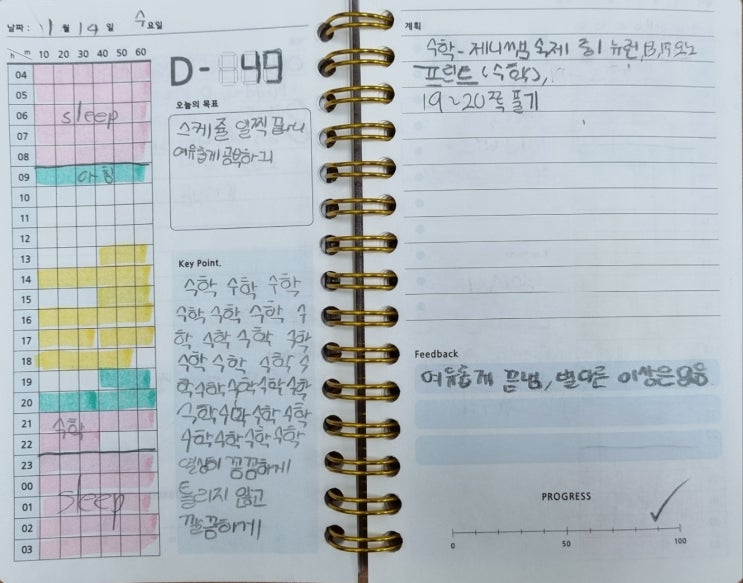 날짜 : 11 월 19 일 수요일
h m 10 20 30 40 50 60
04
05
06 sleep
07
08
09 아침
10
11
12
13
14
15
16
17
18
19
20
21 수학
22
23
00
01 sleep
02
03
D-49
오늘의 목표
스케쥴 일찍 끝내니
여유롭게 공부하기
Key Point.
수학 수학 수학
수학 수학 수학 수
학 수학 수학 수학
수학 수학 수학 수
학 수학 수학 수학 수학
수학 수학 수학 수학
수학 수학 수학 수학
열심히 꼼꼼하게
틀리지 않고
깔끔하게
계획
수학 - 제니쌤 숙제 중1 뉴런,
프린트 (수학),
19~20쪽 풀기
Feedback
여유롭게 끝냄, 별다른 이상은 없음
PROGRESS
0 50 100